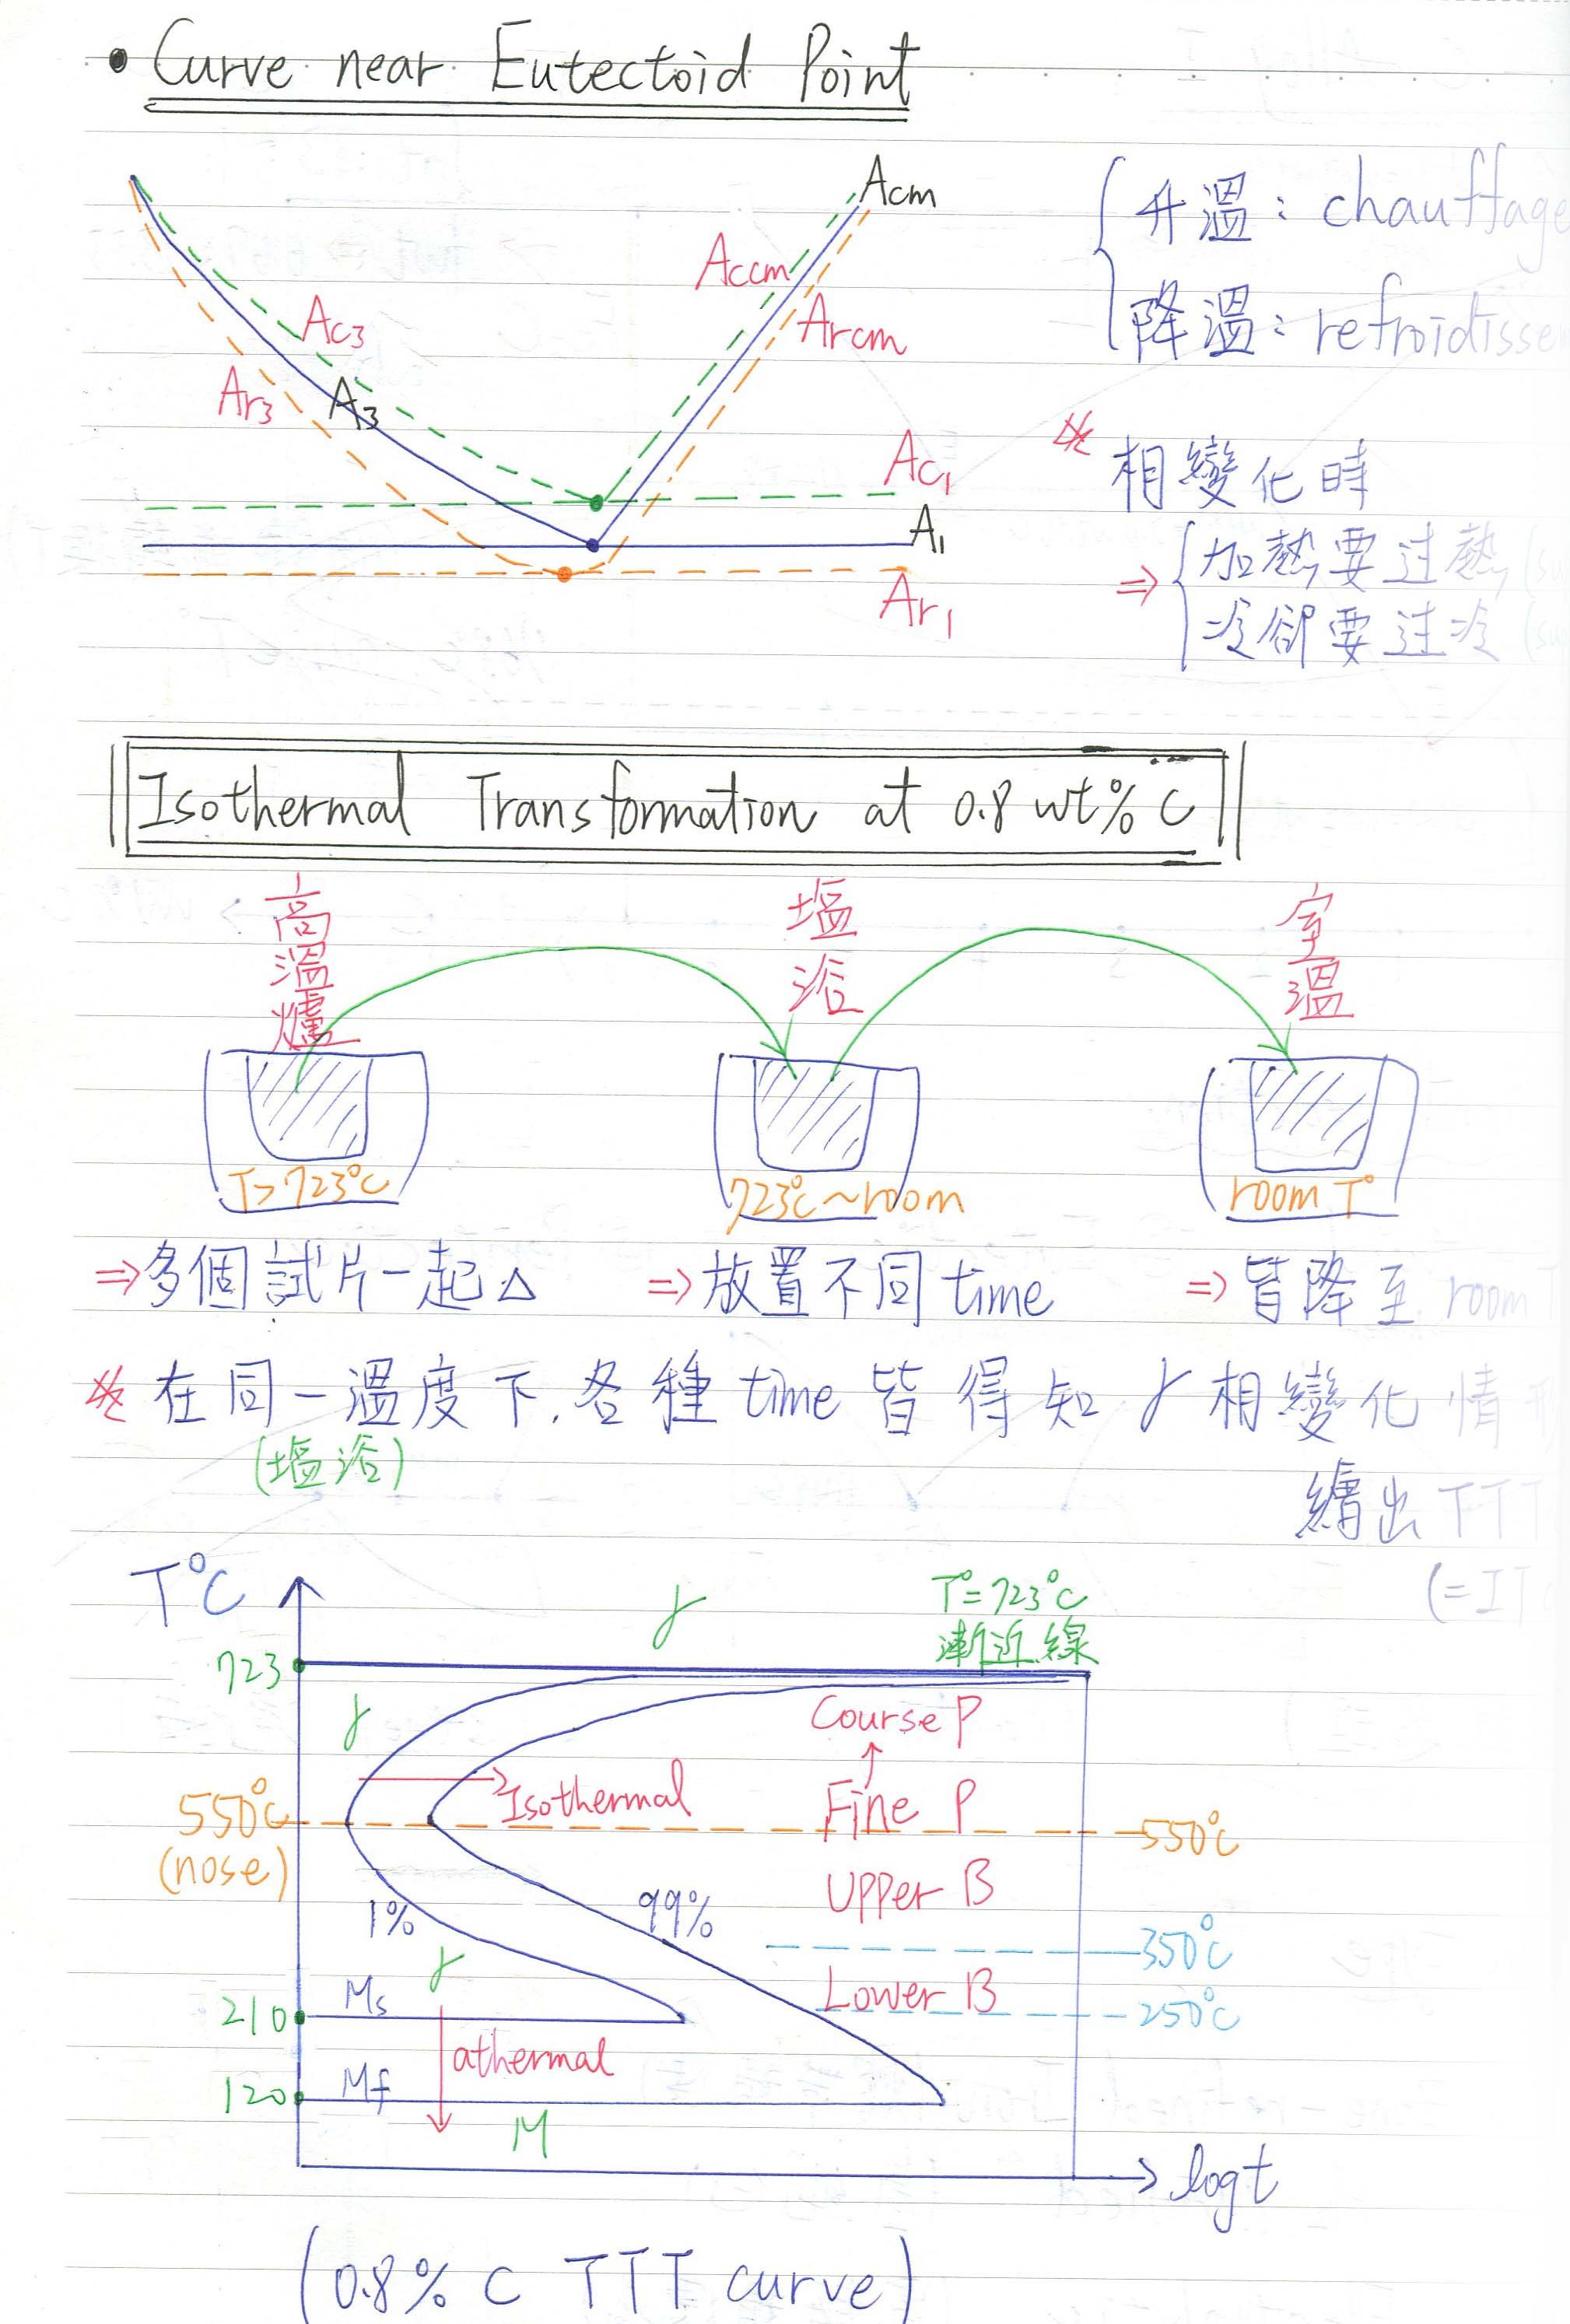 • Curve near Eutectoid Point
Acm
升溫: chauffage
Accm
Ac3
Arcm
降溫: refroidisse
Ar3
A3
Ac1
相變化時
A1
⇒ 加熱要过熱 (su
Ar1
冷卻要过冷 (su
Isothermal Transformation at 0.8 wt% C
高溫爐
塩浴
室溫
T>723°C
723°C~room
room T°
⇒多個試片一起△
⇒放置不同 time
⇒ 皆降至 room
在同一溫度下,各種 time 皆得知 γ 相變化情
(塩浴)
繪出 TTT
(=IT
T°C
γ
T°=723°C
漸近線
723
γ
Course P
↑
Isothermal
Fine P
550°C
550°C
(nose)
Upper B
1%
99%
350°C
γ
Ms
Lower B
210
250°C
athermal
Mf
120
M
log t
(0.8% C TTT curve)